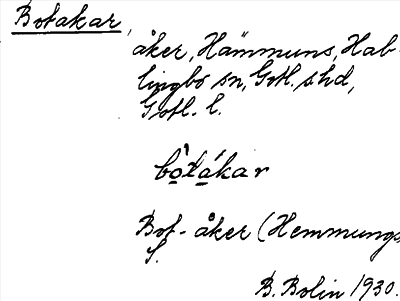 Botakar,
åker, Hämmuns, Hab-
lingbo sn, Gotl. s. hd,
Gotl. l.
bòtákar
Bot-åker (Hemmungs
S.
B. Bolin 1930.